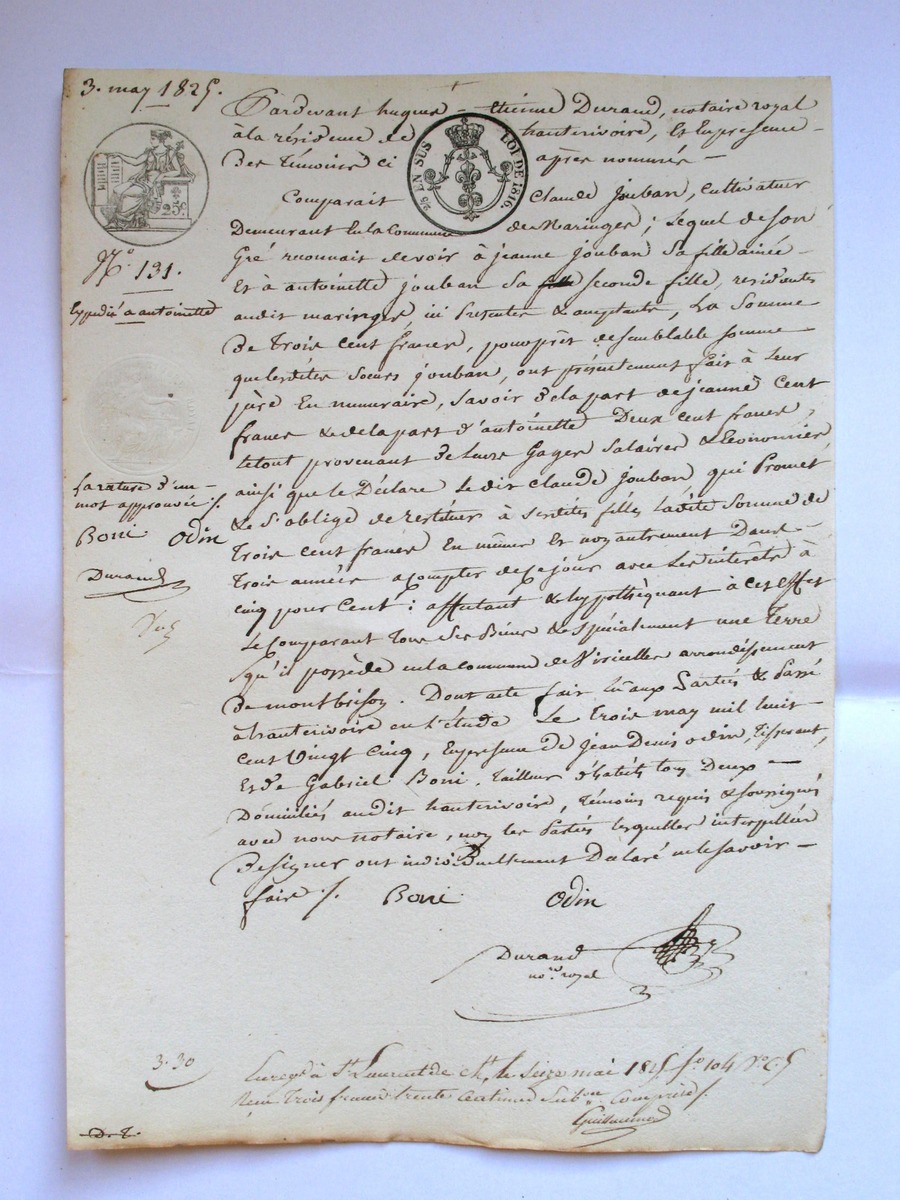 3. may 1825.
Pardevant hugues - etienne Durand, notaire royal
à la résidence de hauterivoire, & En presence -
Des Témoins ci après nommés -
25 EN SUS LOI DE 1816.
25 c.
Comparait Claude Jouban, Cultivateur
Demeurant En la Commune de Maringes ; Lequel de son
Gré reconnait devoir à jeanne jouban sa fille ainée -
Et à antoinette jouban sa seconde fille, residentes
audit maringes, ici Presentes & acceptantes, La Somme
De trois cent francs, pour prêt de semblable somme -
que lesdites soeurs jouban, ont présentement fait à Leur
père En numeraire, savoir de la part de jeanne Cent
francs & de la part d'antoinette Deux cent francs,
Le tout provenant de Leurs Gages Salaires & Economies,
ainsi que le Déclare Le dit Claude jouban, qui Promet
& S'oblige de restituer à sesdites filles Ladite Somme de
Trois cent francs En même Et noy autrement Dans -
Trois années acompter de ce jour avec Les intérêts à
Cinq pour Cent : affectant & hypothèquant à Cet effet
Le Comparant Tous Ses Biens & spécialement une Terre
qu'il possède en la commune de Viricelles arrondissement
De montbrisoy. Dont acte fait Lu aux Parties & Passé
à hauterivoire en l'étude Le Trois may mil huit
cent Vingt Cinq, En presence de Jean Denis odin, Tisserant,
Et de Gabriel Boni, Tailleur d'habits tous Deux -
Domiciliés audit hauterivoire, Témoins requis & soussignés
avec nous notaire, noy les Parties lesquelles interpellées
De signer ont individuellement Déclaré ne le savoir -
faire /. Boni Odin
Durand
no.re royal
N.o 131.
Expedié à antoinette
La rature d'un
mot approuvée /.
Boni Odin
Durand
Vu
3.30
Enreg.é à S.t Laurent de Ch.t le Seize mai 1825 f.o 104 V.o C. 5
Reçu Trois francs trente Centimes Sub.on Comprise /.
Guillaumod
D. T.